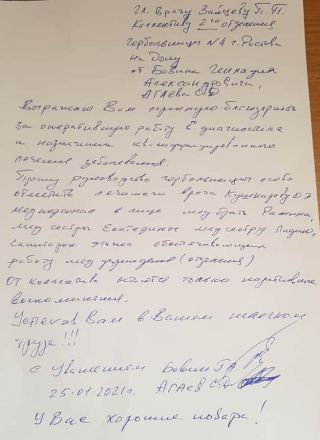 Гл. Врачу Зайцеву П. П.
Коллективу 2го отделения
Горбольницы №4 г. Ростова
на Дону
от Бовина Геннадия
Александровича,
Агаева С.Д
Выражаю Вам огромную благодарность
за оперативную работу в диагностике
и назначении квалифицированного
лечения заболевания.
Прошу руководство горбольницы особо
отметить лечащего врача
мед персонал в лице мед брата
мед сестры Екатерины мед сестру Лидию,
Санитарок этажа обеспечивающих
работу мед учреждения (отделения)
От коллектива остаются только позитивные
воспоминания.
Успехов Вам в Вашем
труде!!!
С Уважением Бовин Г.А.
25.01.2021г. Агаев С.Д
У Вас хорошие повара!